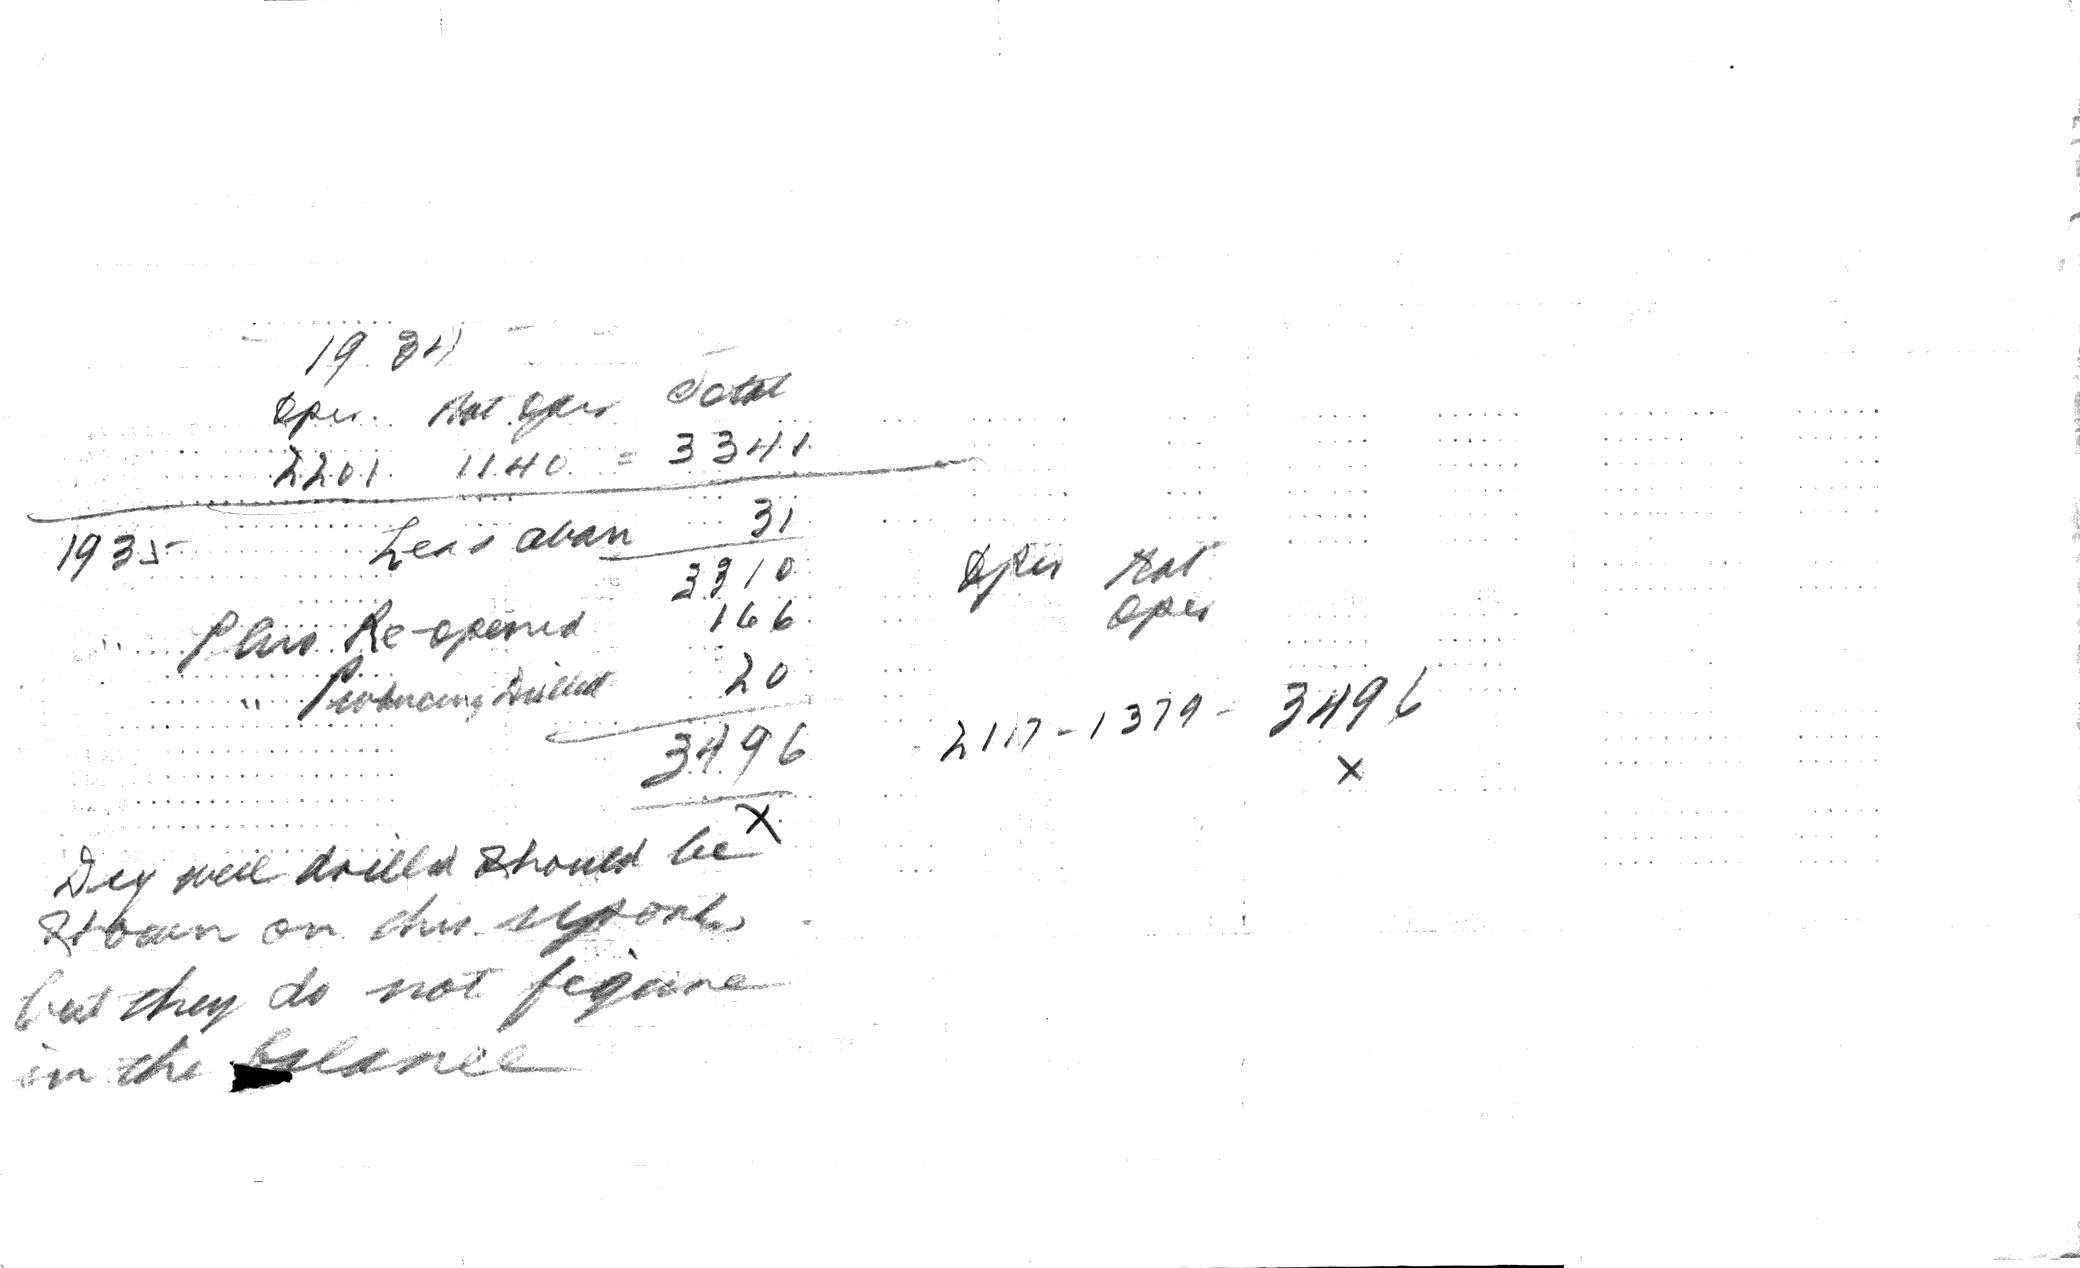 1934
Oper. Not Oper Total
2201 1140 = 3341
1935 Less aban 31
3310
Oper Not
" Plus Re-opened 166
Oper
" Producing Drilled 20
2117 - 1379 - 3496
3496
x
x
Dry well drilled should be
shown on this report
but they do not figure
in the balance